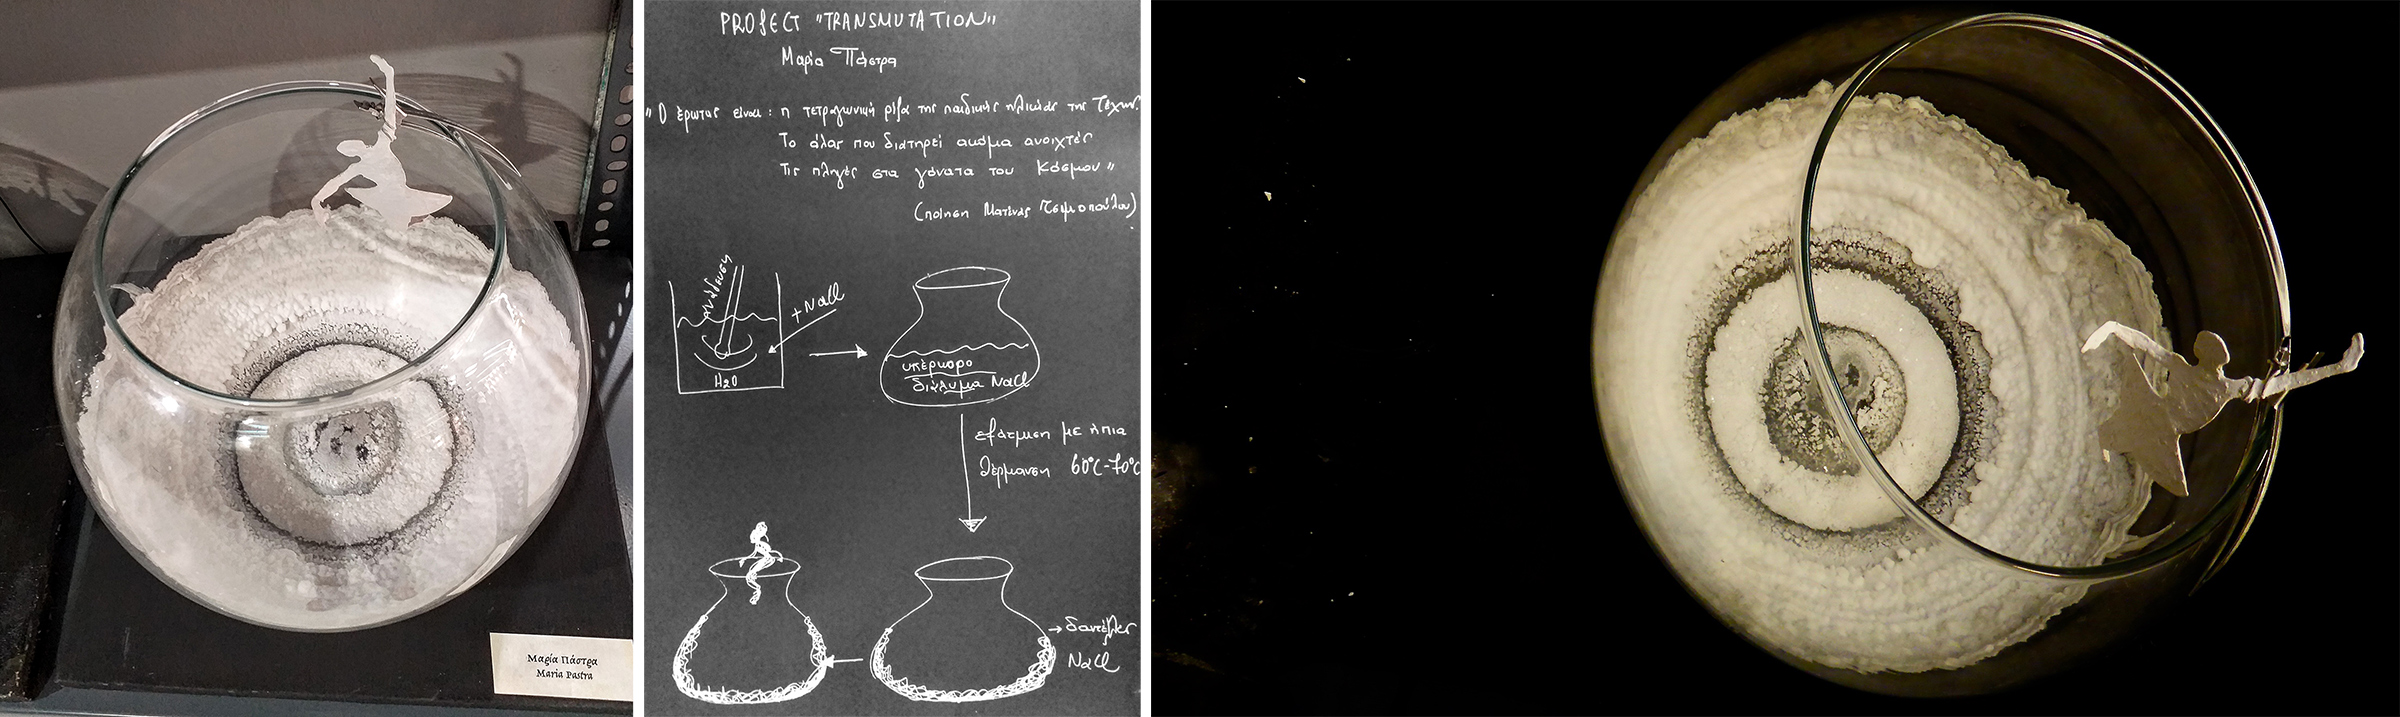 PROJECT "TRANSMUTATION"
Μαρία Πάστρα
"Ο έρωτας είναι: η τετραγωνική ρίζα της παιδικής ηλικίας της Τέχνης.
Το άλας που διατηρεί ακόμα ανοιχτές
Τις πληγές στα γόνατα του Κόσμου"
(ποίηση Ματίνας Τσιμοπούλου)
ανάδευση
+ NaCl
H2O
υπέρκορο
διάλυμα NaCl
εξάτμιση με ήπια
θέρμανση 60°C-70°C
δαντέλες
NaCl
Μαρία Πάστρα
Maria Pastra